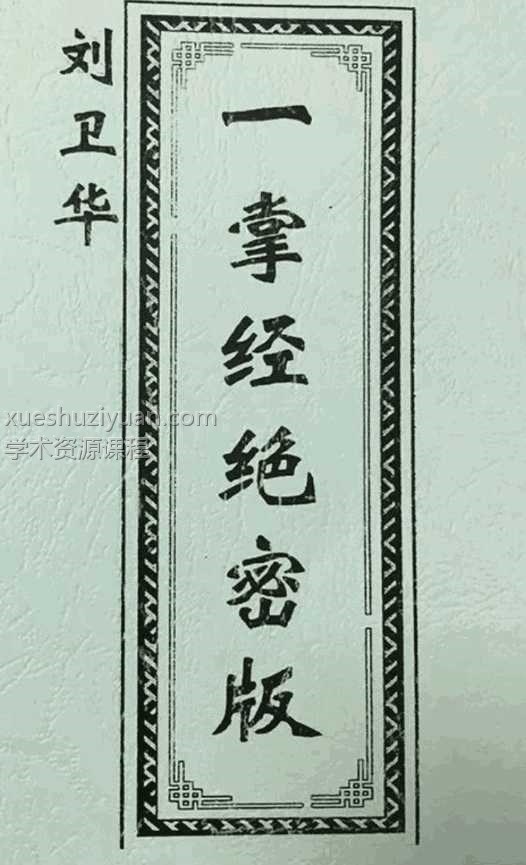 刘卫华
一掌经绝密版
xueshuziyuan.com
学术资源课程